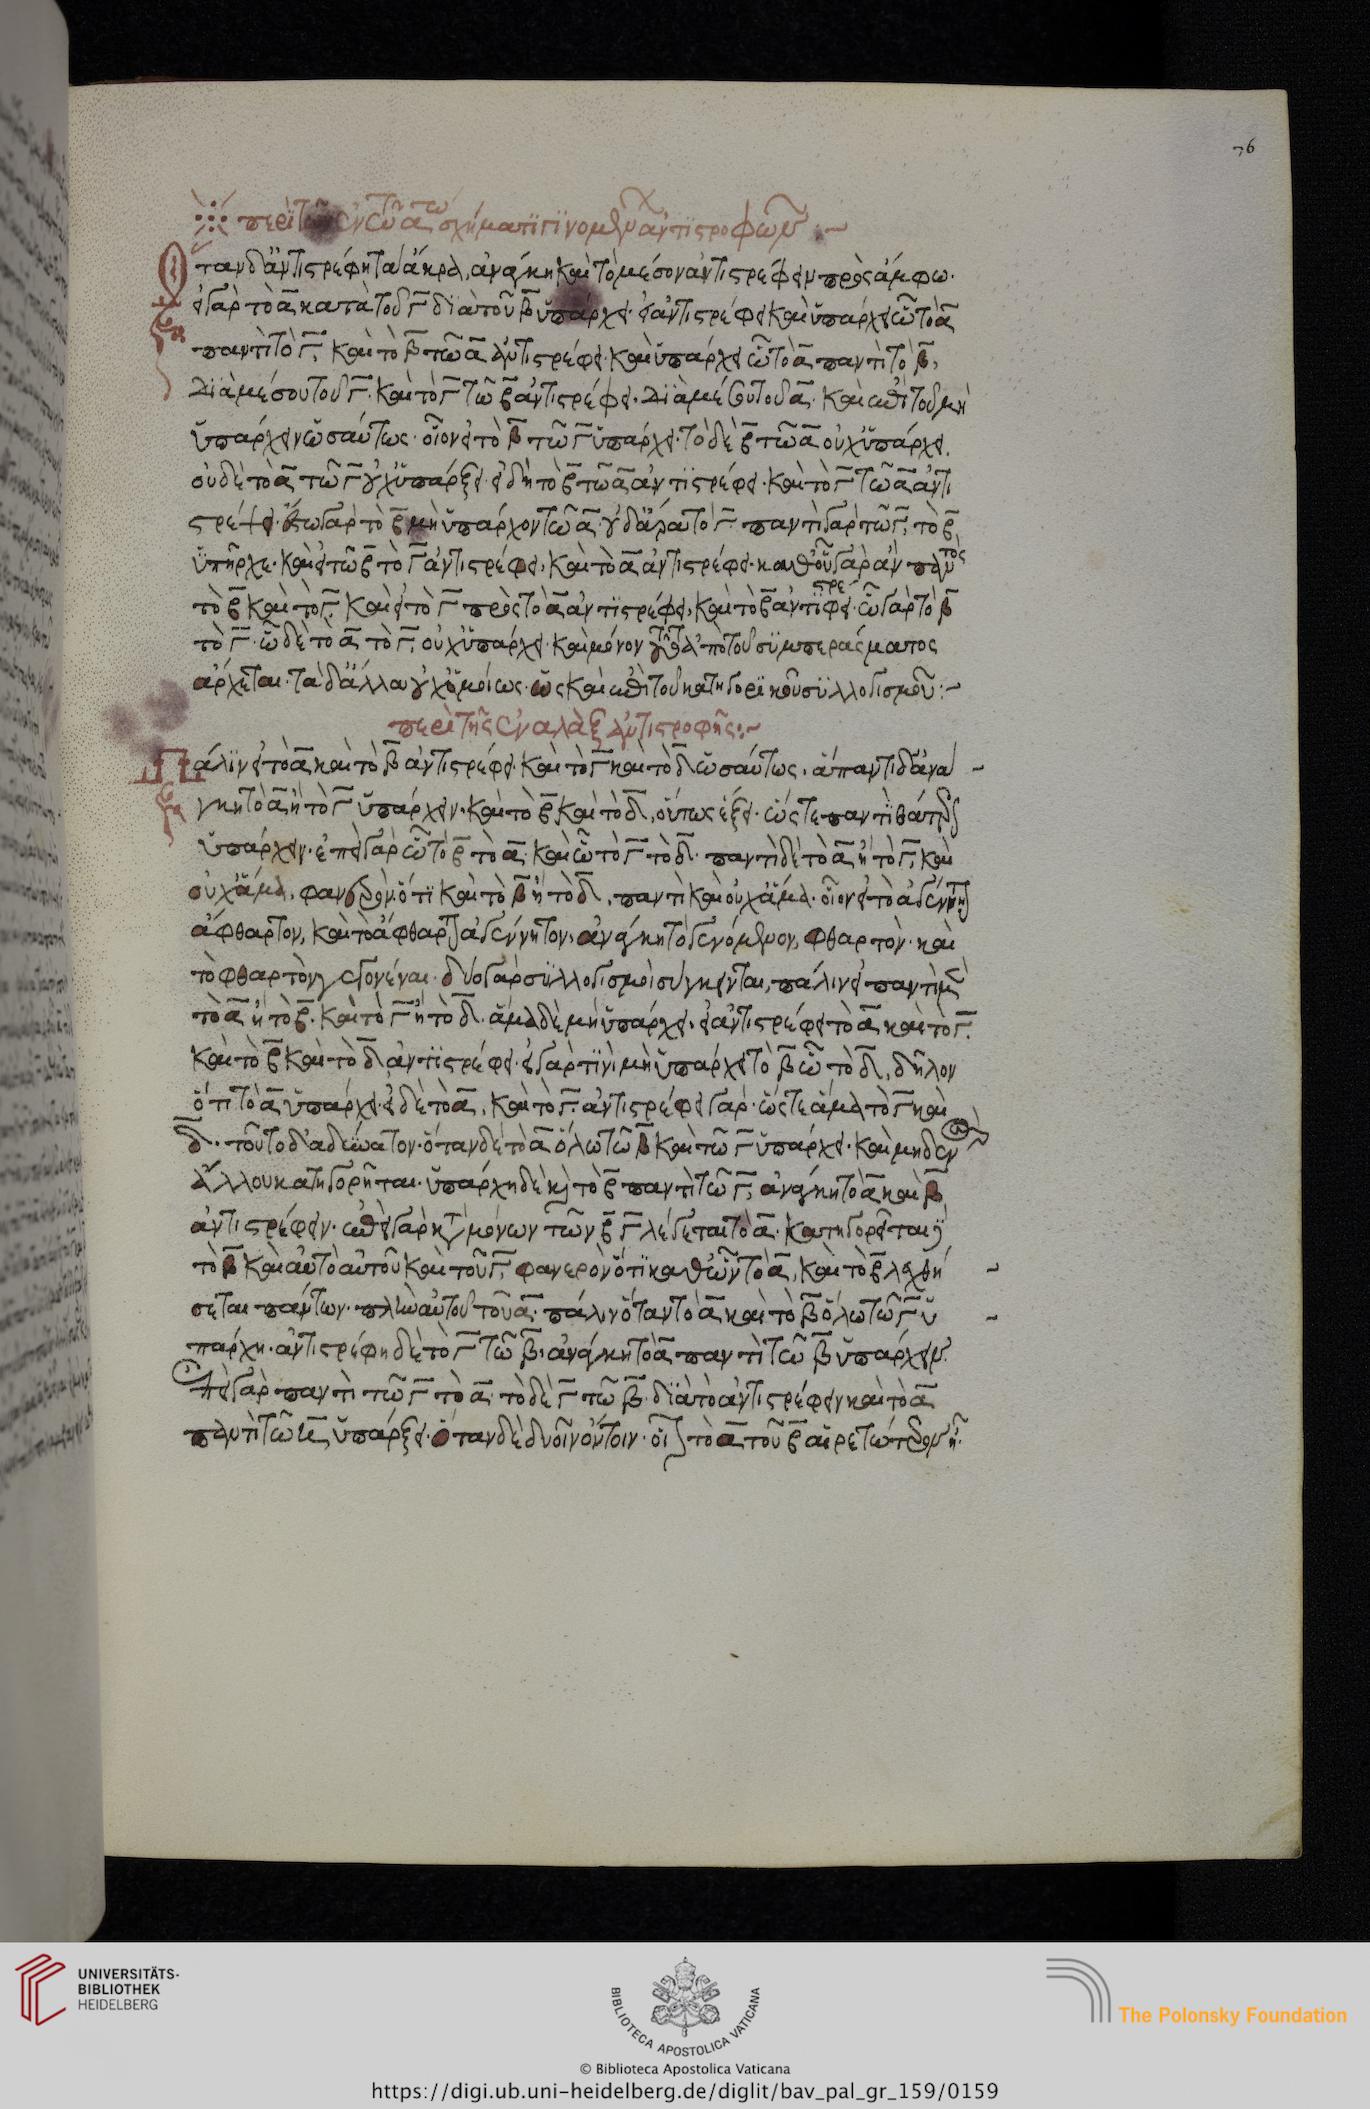 76
περὶ τῶν ἐν τῶ αω σχήματι γινομένων ἀντιστροφῶν :~
Ὅταν δ' ἀντιστρέφη τὰ ἄκρα, ἀνάγκη καὶ τὸ μέσον ἀντιστρέφειν πρὸς ἄμφω·
εἰ γὰρ τὸ α κατὰ τοῦ γ διὰ τοῦ β ὑπάρχει· εἰ ἀντιστρέφει καὶ ὑπάρχει ὧ τὸ α
παντὶ τὸ γ, καὶ τὸ β τῶ α ἀντιστρέφει· καὶ ὑπάρχει ὧ τὸ α παντὶ τὸ β,
διὰ μέσου τοῦ γ. καὶ τὸ γ τῶ β ἀντιστρέφει· διὰ μέσου τοῦ α· καὶ ἐπὶ τοῦ μὴ
ὑπάρχειν ὡσαύτως· οἷον εἰ τὸ β τῶ γ ὑπάρχει· τὸ δὲ β τῶ α οὐχ ὑπάρχει,
οὐδὲ τὸ α τῶ γ οὐχ ὑπάρξει· εἰ δὴ τὸ β τῶ α ἀντιστρέφει· καὶ τὸ γ τῶ α ἀντι
στρέφει· ἔστω γὰρ τὸ β μὴ ὑπάρχον τῶ α· οὐδ' ἄρα τὸ γ· παντὶ γὰρ τῶ γ, τὸ β
ὑπῆρχε· καὶ εἰ τῶ β τὸ γ ἀντιστρέφει, καὶ τὸ α ἀντιστρέφει· καθ' οὗ γὰρ ἂν παντὸς
τὸ β καὶ τὸ γ. καὶ εἰ τὸ γ πρὸς τὸ α ἀντιστρέφει, καὶ τὸ β ἀντιστρέφει· ὧ γὰρ τὸ β
τὸ γ· ὧ δὲ τὸ α τὸ γ, οὐχ ὑπάρχει· καὶ μόνον τοῦτο ἀπὸ τοῦ συμπεράσματος
ἄρχεται· τὰ δ' ἄλλα οὐχ ὁμοίως· ὡς καὶ ἐπὶ τοῦ κατηγορικοῦ συλλογισμοῦ :~
περὶ τῆς ἐναλὰξ ἀντιστροφῆς :~
Πάλιν εἰ τὸ α καὶ τὸ β ἀντιστρέφει· καὶ τὸ γ καὶ τὸ δ ὡσαύτως· ἅπαντι δ' ἀνά
γκη τὸ α ἢ τὸ γ ὑπάρχειν· καὶ τὸ β καὶ τὸ δ, οὕτως ἕξει· ὥστε παντὶ θάτερον
ὑπάρχειν· ἐπεὶ γὰρ ὧ τὸ β τὸ α· καὶ ὧ τὸ γ τὸ δ· παντὶ δὲ τὸ α ἢ τὸ γ, καὶ
οὐχ ἅμα, φανερὸν ὅτι καὶ τὸ β ἢ τὸ δ, παντὶ καὶ οὐχ ἅμα· οἷον εἰ τὸ ἀγέννητον
ἄφθαρτον, καὶ τὸ ἄφθαρτον ἀγέννητον, ἀνάγκη τὸ γενόμενον, φθαρτόν· καὶ
τὸ φθαρτὸν γεγονέναι· δύο γὰρ συλλογισμοὶ σύγκεινται, πάλιν εἰ παντὶ μὲν
τὸ α ἢ τὸ β. καὶ τὸ γ ἢ τὸ δ. ἅμα δὲ μὴ ὑπάρχει, εἰ ἀντιστρέφει τὸ α καὶ τὸ γ.
καὶ τὸ β καὶ τὸ δ ἀντιστρέφει· εἰ γὰρ τινὶ μὴ ὑπάρχει τὸ β ὧ τὸ δ, δῆλον
ὅτι τὸ α ὑπάρχει· εἰ δὲ τὸ α, καὶ τὸ γ· ἀντιστρέφει γάρ· ὥστε ἅμα τὸ γ καὶ
δ· τοῦτο δ' ἀδύνατον· ὅταν δὲ τὸ α ὅλω τῶ β καὶ τῶ γ ὑπάρχει· καὶ μηδενὸς
ἄλλου κατηγορῆται· ὑπάρχη δὲ καὶ τὸ β παντὶ τῶ γ, ἀνάγκη τὸ α καὶ β
ἀντιστρέφειν· ἐπεὶ γὰρ κατὰ μόνων τῶν β γ λέγεται τὸ α· κατηγορεῖται δὲ
τὸ β καὶ αὐτὸ αὑτοῦ καὶ τοῦ γ, φανερὸν ὅτι καθ' ὧν τὸ α, καὶ τὸ β λεχθή
σεται πάντων· πλὴν αὐτοῦ τοῦ α· πάλιν ὅταν τὸ α καὶ τὸ β ὅλω τῶ γ ὑ
πάρχη· ἀντιστρέφη δὲ τὸ γ τῶ β· ἀνάγκη τὸ α παντὶ τῶ β ὑπάρχειν·
ἐπεὶ γὰρ παντὶ τῶ γ τὸ α· τὸ δὲ γ τῶ β· διὰ τὸ ἀντιστρέφειν καὶ τὸ α
παντὶ τῶ β ὑπάρξει· ὅταν δὲ δυοῖν ὄντοιν· οἷον τὸ α τοῦ β αἱρετώτερον ἦ·
UNIVERSITÄTS-
BIBLIOTHEK
HEIDELBERG
BIBLIOTECA APOSTOLICA VATICANA
The Polonsky Foundation
© Biblioteca Apostolica Vaticana
https://digi.ub.uni-heidelberg.de/diglit/bav_pal_gr_159/0159